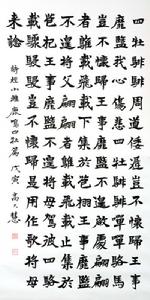 四牡騑騑周道倭遲豈不懷歸王事
靡盬我心傷悲四牡騑騑嘽嘽駱馬
豈不懷歸王事靡盬不遑啟處翩翩
者鵻載飛載下集于苞栩王事靡盬
不遑將父翩翩者鵻載飛載止集于
苞杞王事靡盬不遑將母駕彼四駱
載驟駸駸豈不懷歸是用作歌將母
來諗
詩經小雅鹿鳴四牡篇 戊寅 高慧